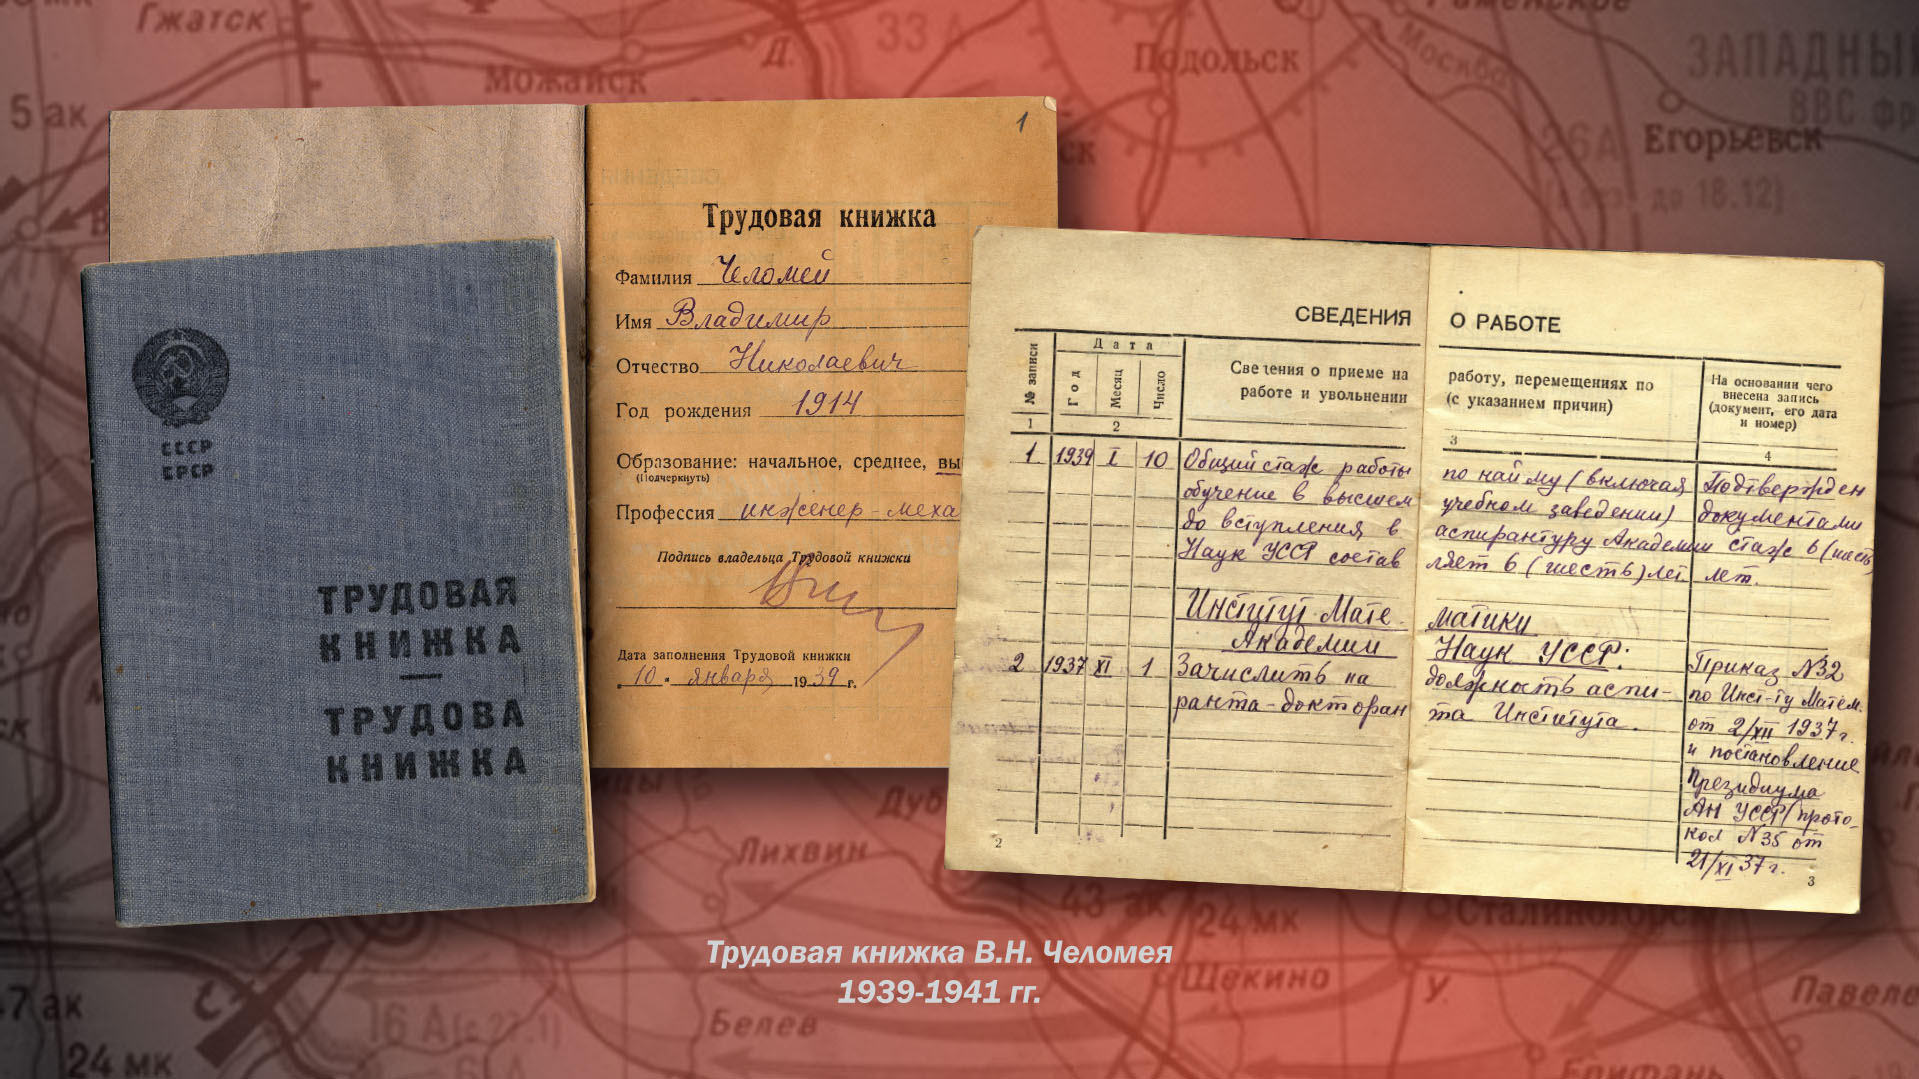 СССР
БРСР
ТРУДОВАЯ
КНИЖКА
ТРУДОВА
КНИЖКА
1
Трудовая книжка
Фамилия Челомей
Имя Владимир
Отчество Николаевич
Год рождения 1914
Образование: начальное, среднее, вы
(Подчеркнуть)
Профессия инженер-меха
Подпись владельца Трудовой книжки
Дата заполнения Трудовой книжки
"10" января 1939 г.
СВЕДЕНИЯ О РАБОТЕ
№ записи
Дата
Год
Месяц
Число
Сведения о приеме на работу, перемещениях по
работе и увольнении (с указанием причин)
На основании чего
внесена запись
(документ, его дата
и номер)
1 2 3 4
1 1939 I 10 Общий стаж работы по найму (включая
обучение в высшем учебном заведении)
до вступления в аспирантуру Академии
Наук УССР составляет 6 (шесть) лет
Подтвержден
документами
стаж 6 (шесть)
лет.
Институт Математики
Академии Наук УССР:
2 1937 XI 1 Зачислить на должность аспи-
ранта-докторанта Института.
Приказ №32
по Инст-ту Матем.
от 2/XII 1937 г.
и постановление
Президиума
АН УССР (прото-
кол №35 от
21/XI 37 г.
2
3
Трудовая книжка В.Н. Челомея
1939-1941 гг.
Гжатск
Можайск
Д.
33 А
Подольск
Москва
Раменское
ЗАПАДНЫЙ
ВВС фр
26А
Егорьевск
до 18.12)
5 ак
Лихвин
43 ак
24 мк
Сталиногорск
Щекино
У.
Белев
16 А
7 ак
24 мк
Павеле
Епифань